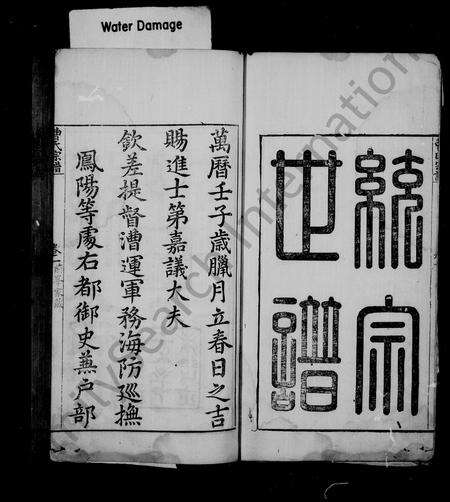 Water Damage
統宗
世譜
萬曆壬子歲臘月立春日之吉
賜進士第嘉議大夫
欽差提督漕運軍務海防巡撫
鳳陽等處右都御史兼戶部
曾氏宗譜
FamilySearch International